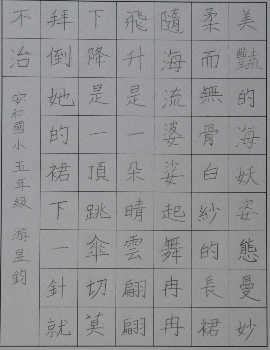 美豔的海妖姿態曼妙
柔而無骨白紗的長裙
隨海流婆娑起舞冉冉
飛升是一朵晴雲翩翩
下降是一頂跳傘切莫
拜倒她的裙下一針就
不治
安和國小五年級 游昱鈞